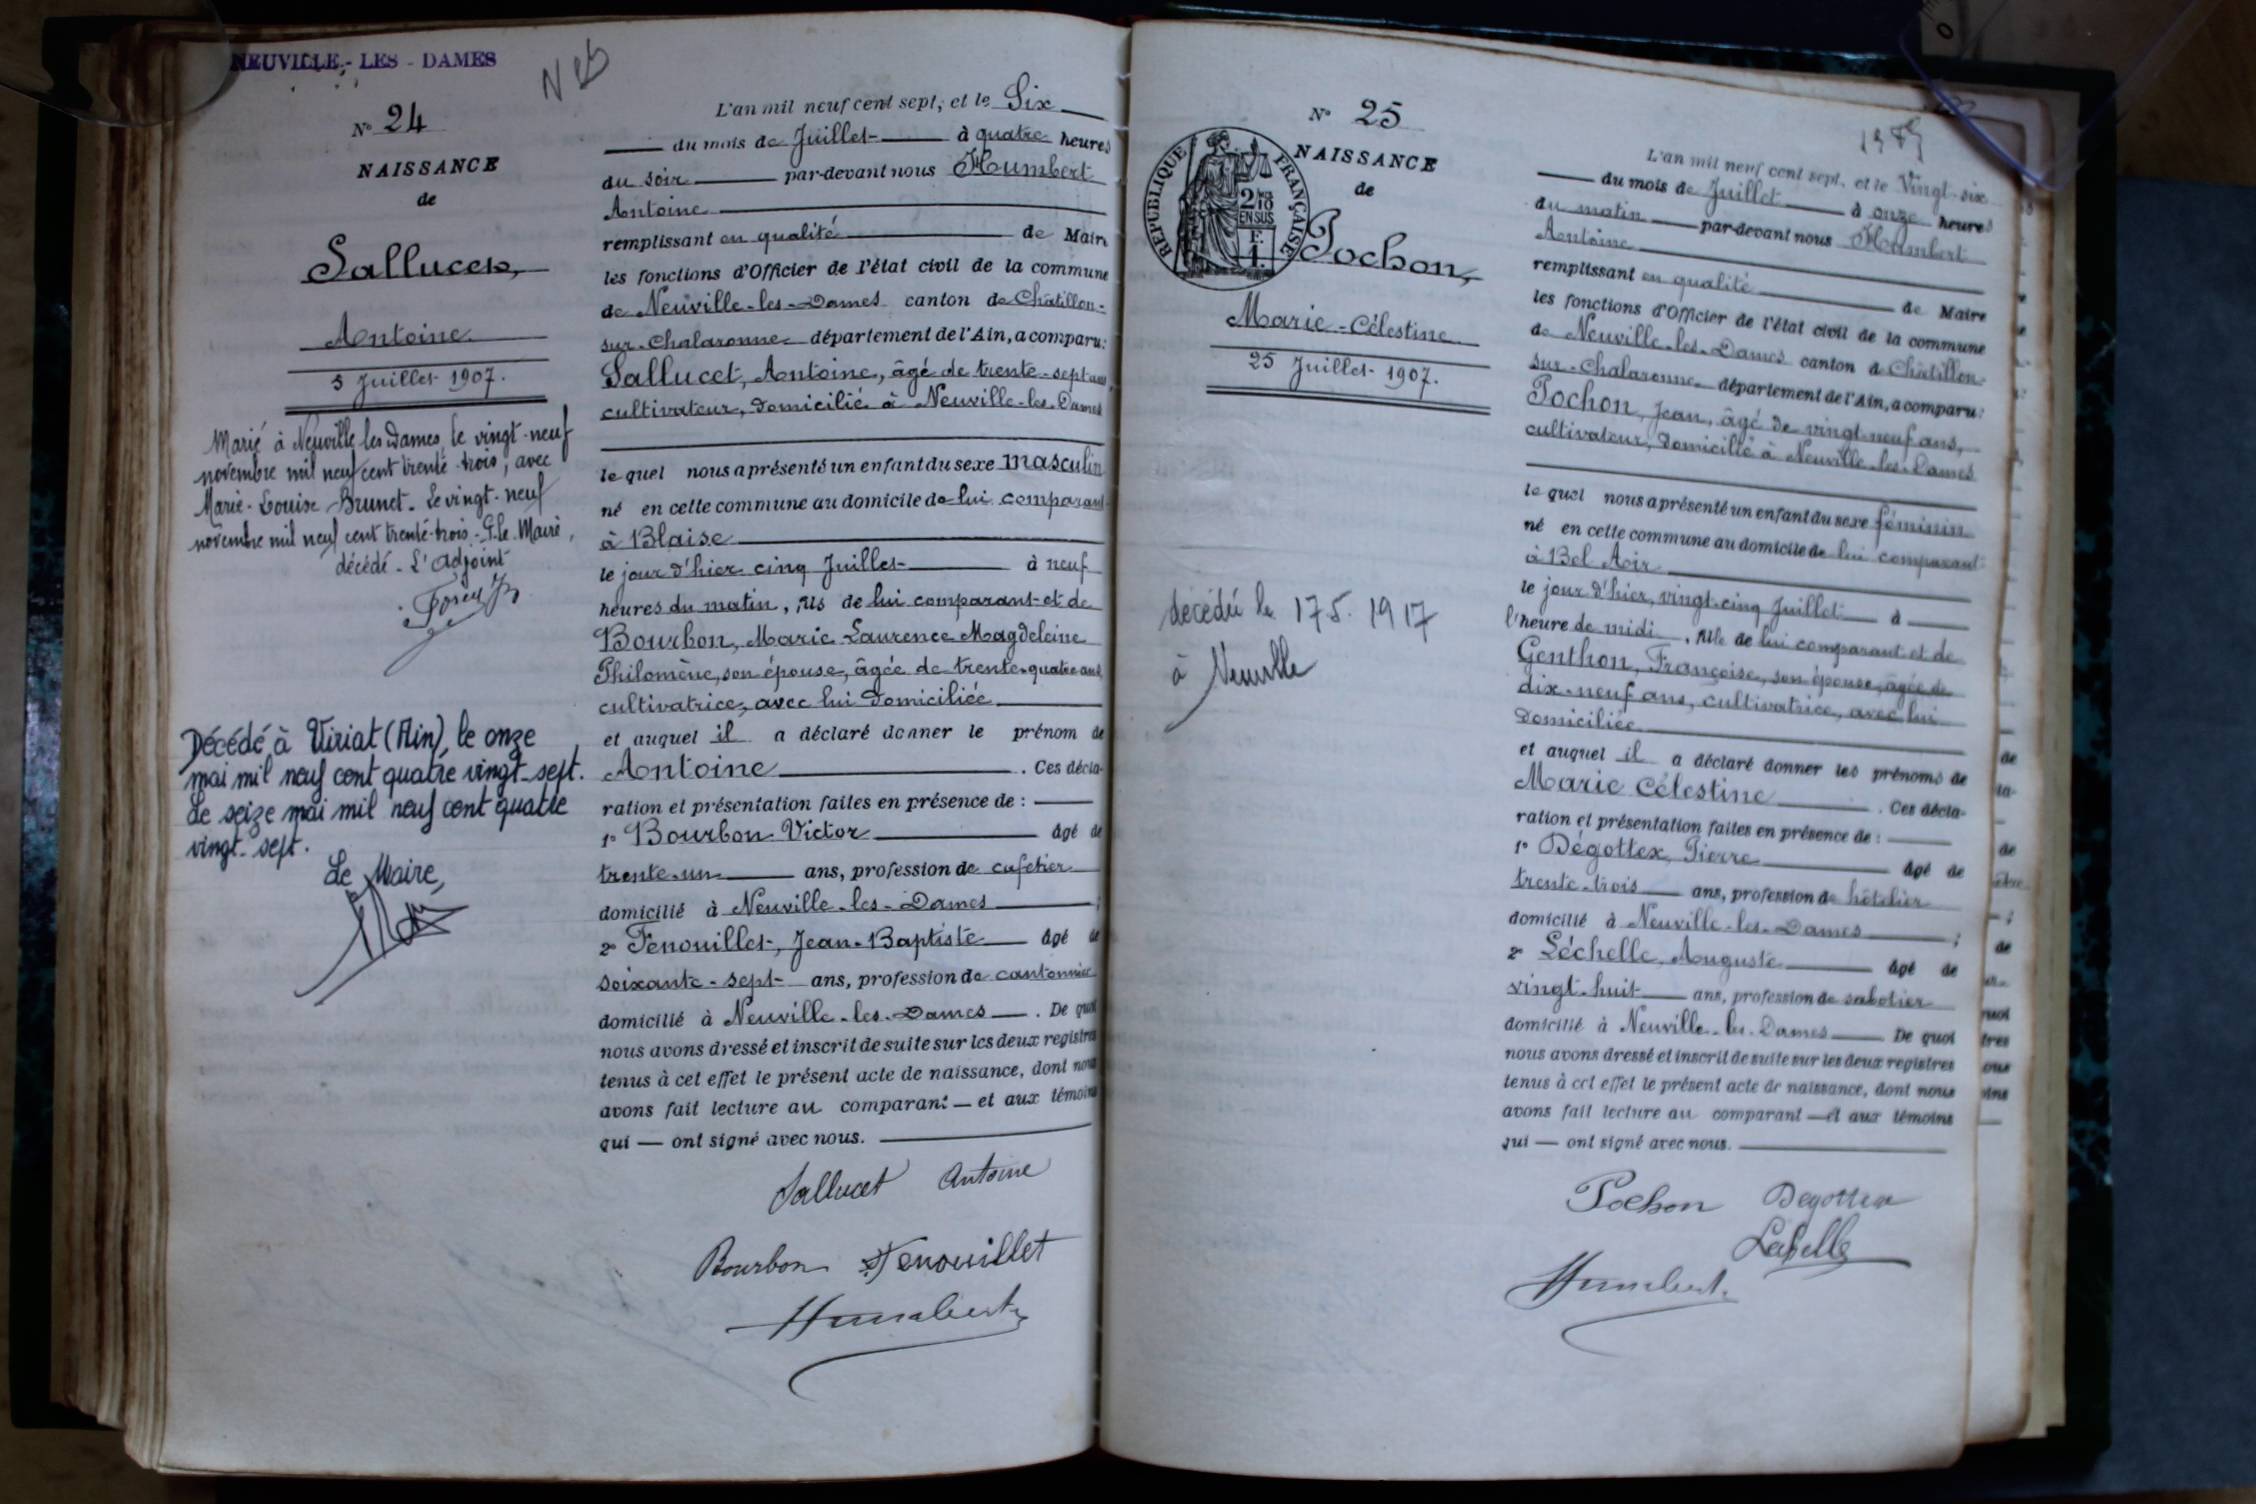 NEUVILLE - LES - DAMES
N° 24
NAISSANCE
de
Sallucet,
Antoine
5 Juillet 1907.
Marié à Neuville les Dames, le vingt-neuf
novembre mil neuf cent trente-trois, avec
Marie-Louise Brunet. Le vingt-neuf
novembre mil neuf cent trente-trois. P. le Maire,
décédé - L'Adjoint
Décédé à Viriat (Ain), le onze
mai mil neuf cent quatre vingt-sept.
Le seize mai mil neuf cent quatre
vingt-sept.
Le Maire,
L'an mil neuf cent sept, et le Six
du mois de Juillet à quatre heures
du soir par-devant nous Humbert
Antoine
remplissant en qualité de Maire
les fonctions d'Officier de l'état civil de la commune
de Neuville-les-Dames canton de Châtillon-
sur-Chalaronne département de l'Ain, a comparu:
Sallucet, Antoine, âgé de trente-sept ans,
cultivateur, domicilié à Neuville-les-Dames
le quel nous a présenté un enfant du sexe masculin
né en cette commune au domicile de lui comparant
à Blaise
le jour d'hier cinq Juillet à neuf
heures du matin, fils de lui comparant et de
Bourbon, Marie Laurence Magdeleine
Philomène, son épouse, âgée de trente-quatre ans,
cultivatrice, avec lui domiciliée
et auquel il a déclaré donner le prénom de
Antoine. Ces décla-
ration et présentation faites en présence de :
1° Bourbon Victor âgé de
trente-un ans, profession de cafetier
domicilié à Neuville-les-Dames ;
2° Fenouillet, Jean-Baptiste âgé de
soixante-sept ans, profession de cantonnier
domicilié à Neuville-les-Dames. De quoi
nous avons dressé et inscrit de suite sur les deux registres
tenus à cet effet le présent acte de naissance, dont nous
avons fait lecture au comparant — et aux témoins
qui — ont signé avec nous.
Sallucet Antoine
Bourbon Fenouillet
Humbert
N° 25
NAISSANCE
de
RÉPUBLIQUE FRANÇAISE
2/10
EN SUS
F.
1.
Pochon,
Marie-Célestine
25 Juillet 1907.
décédée le 17.5.1917
à Neuville
L'an mil neuf cent sept, et le Vingt-six
du mois de Juillet à onze heures
du matin par-devant nous Humbert
Antoine
remplissant en qualité de Maire
les fonctions d'Officier de l'état civil de la commune
de Neuville-les-Dames canton de Châtillon-
sur-Chalaronne département de l'Ain, a comparu:
Pochon, Jean, âgé de vingt-neuf ans,
cultivateur, domicilié à Neuville-les-Dames
le quel nous a présenté un enfant du sexe féminin
né en cette commune au domicile de lui comparant
à Bel Air
le jour d'hier, vingt-cinq Juillet à
l'heure de midi, fille de lui comparant et de
Genthon, Françoise, son épouse, âgée de
dix-neuf ans, cultivatrice, avec lui
domiciliée
et auquel il a déclaré donner les prénoms de
Marie Célestine. Ces décla-
ration et présentation faites en présence de :
1° Dégottex, Pierre âgé de
trente-trois ans, profession de hôtelier
domicilié à Neuville-les-Dames ;
2° Léchelle, Auguste âgé de
vingt-huit ans, profession de sabotier
domicilié à Neuville-les-Dames De quoi
nous avons dressé et inscrit de suite sur les deux registres
tenus à cet effet le présent acte de naissance, dont nous
avons fait lecture au comparant — et aux témoins
qui — ont signé avec nous.
Pochon Degottex
Humbert